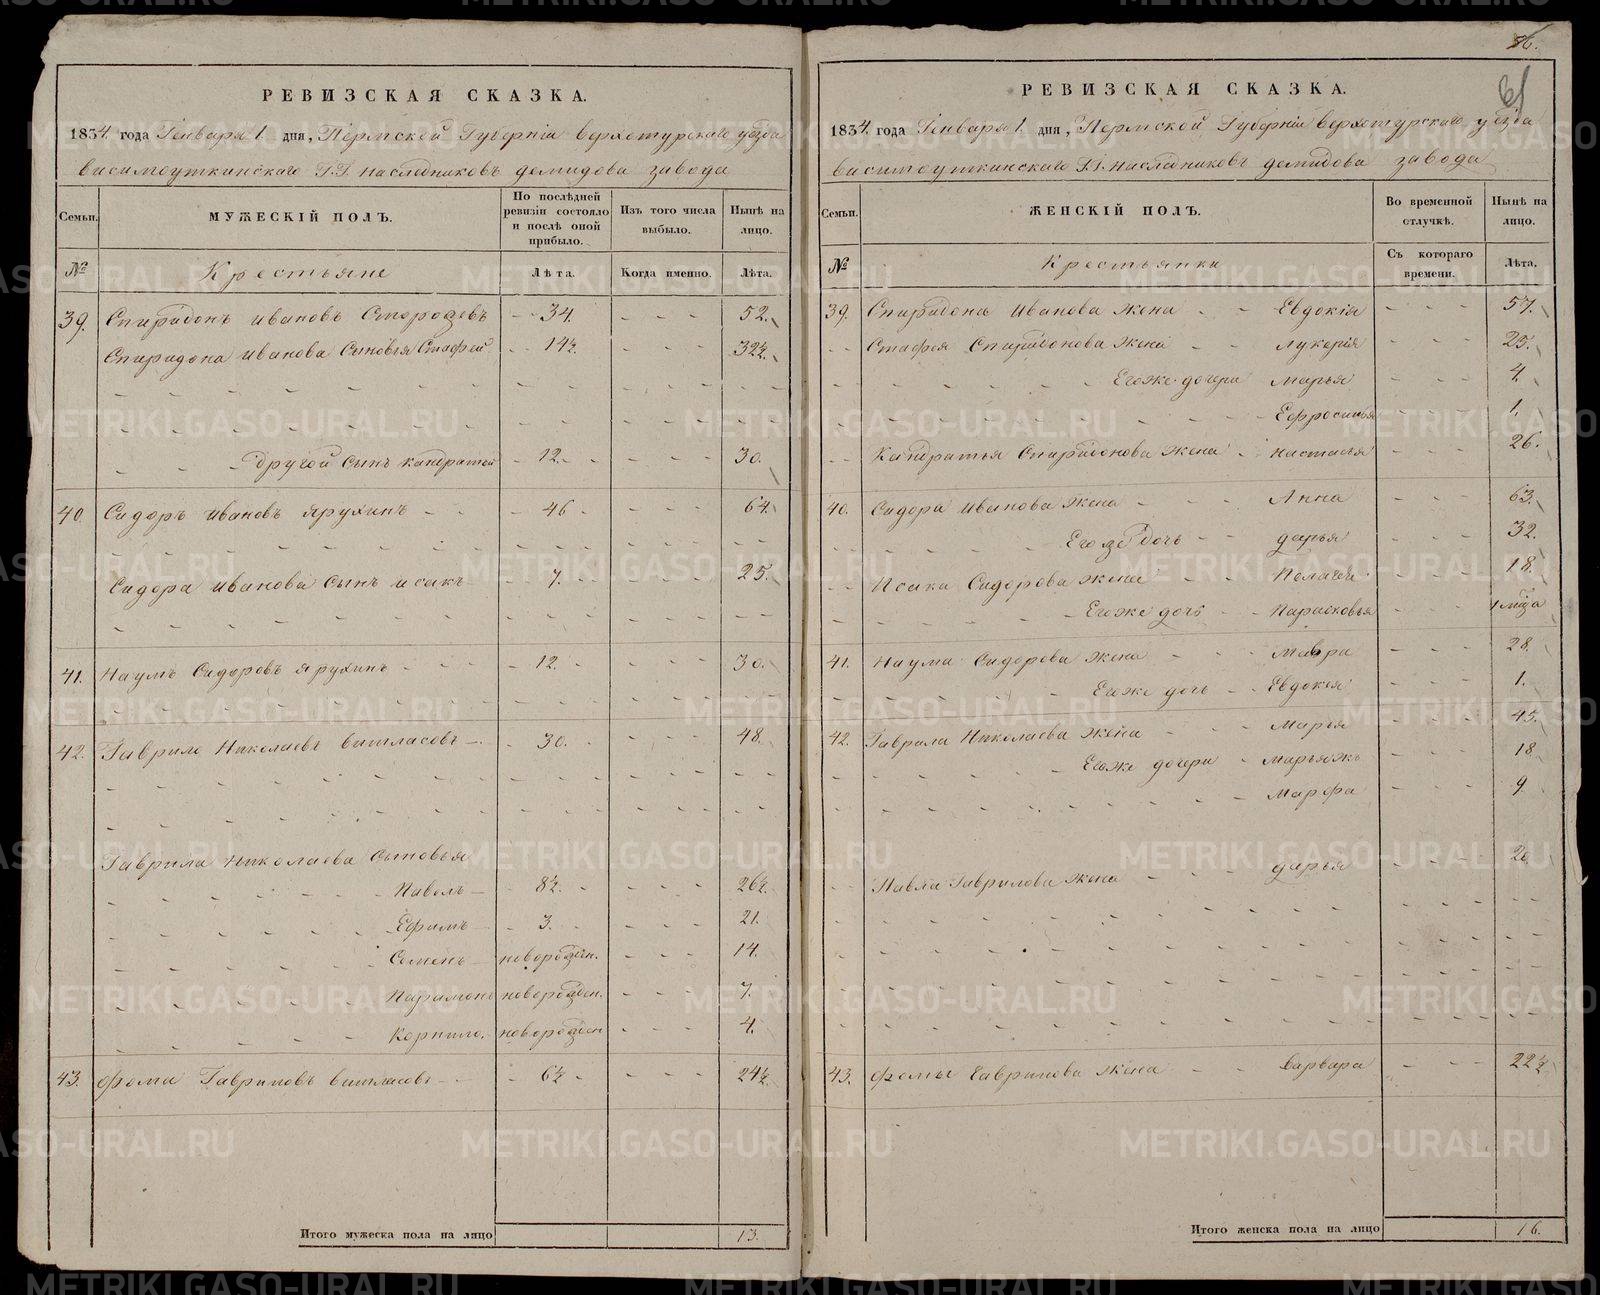 РЕВИЗСКАЯ СКАЗКА.
1834. года Генваря 1. дня, Пермской Губерніи верхотурскаго уезда
висимоуткинскаго Г.Г. наследниковъ демидова завода
Семьи.
МУЖЕСКІЙ ПОЛЪ.
По послѣдней ревизіи состояло и послѣ оной прибыло.
Изъ того числа выбыло.
Нынѣ на лицо.
№
Крестьяне
Лѣта.
Когда именно.
Лѣта.
39. Спиридонъ ивановъ 34. 52.
Спиридона иванова Сыновья Стафей 14½. 32½.
другой сынъ кандратей 12. 30.
40. Сидоръ ивановъ ярухинъ 46 64.
Сидора иванова сынъ исакъ 7. 25.
41. Наумъ Сидоровъ ярухинъ 12. 30.
42. Гаврило Николаевъ 30. 48.
Гаврила Николаева Сыновья
Павелъ 8½. 26½.
Ефимъ 3. 21.
Семенъ новорожден. 14.
Парамонъ новорожден. 7.
Корнило. новорожден 4.
43. фома Гавриловъ 6½ 24½.
Итого мужеска пола на лицо 13.
56.
61
РЕВИЗСКАЯ СКАЗКА.
1834. года Генваря 1. дня, Пермской Губерніи верхотурскаго уезда
висимоуткинскаго Г.Г. наследниковъ демидова завода
Семьи.
ЖЕНСКІЙ ПОЛЪ.
Во временной отлучкѣ.
Нынѣ на лицо.
№
Крестьянки
Съ котораго времени.
Лѣта.
39. Спиридона иванова жена Евдокія 57.
Стафея Спиридонова жена лукерія 25.
Егоже дочери марья 4
Ефросинья 1.
Кандратья Спиридонова жена настасья 26.
40. Сидора иванова жена Анна 63.
дочь дарья 32.
Исака Сидорова жена Пелагея 18.
Егоже дочь Парасковья 1 мѣца
41. Наума Сидорова жена мавра 28.
Егоже дочь Евдокея 1.
42. Гаврила Николаева жена марья 45.
Егоже дочери марьяжъ 18
марфа 9.
Павла Гаврилова жена дарья 26.
43. фомы Гаврилова жена варвара 22½
Итого женска пола на лицо 16.
METRIKI.GASO-URAL.RU